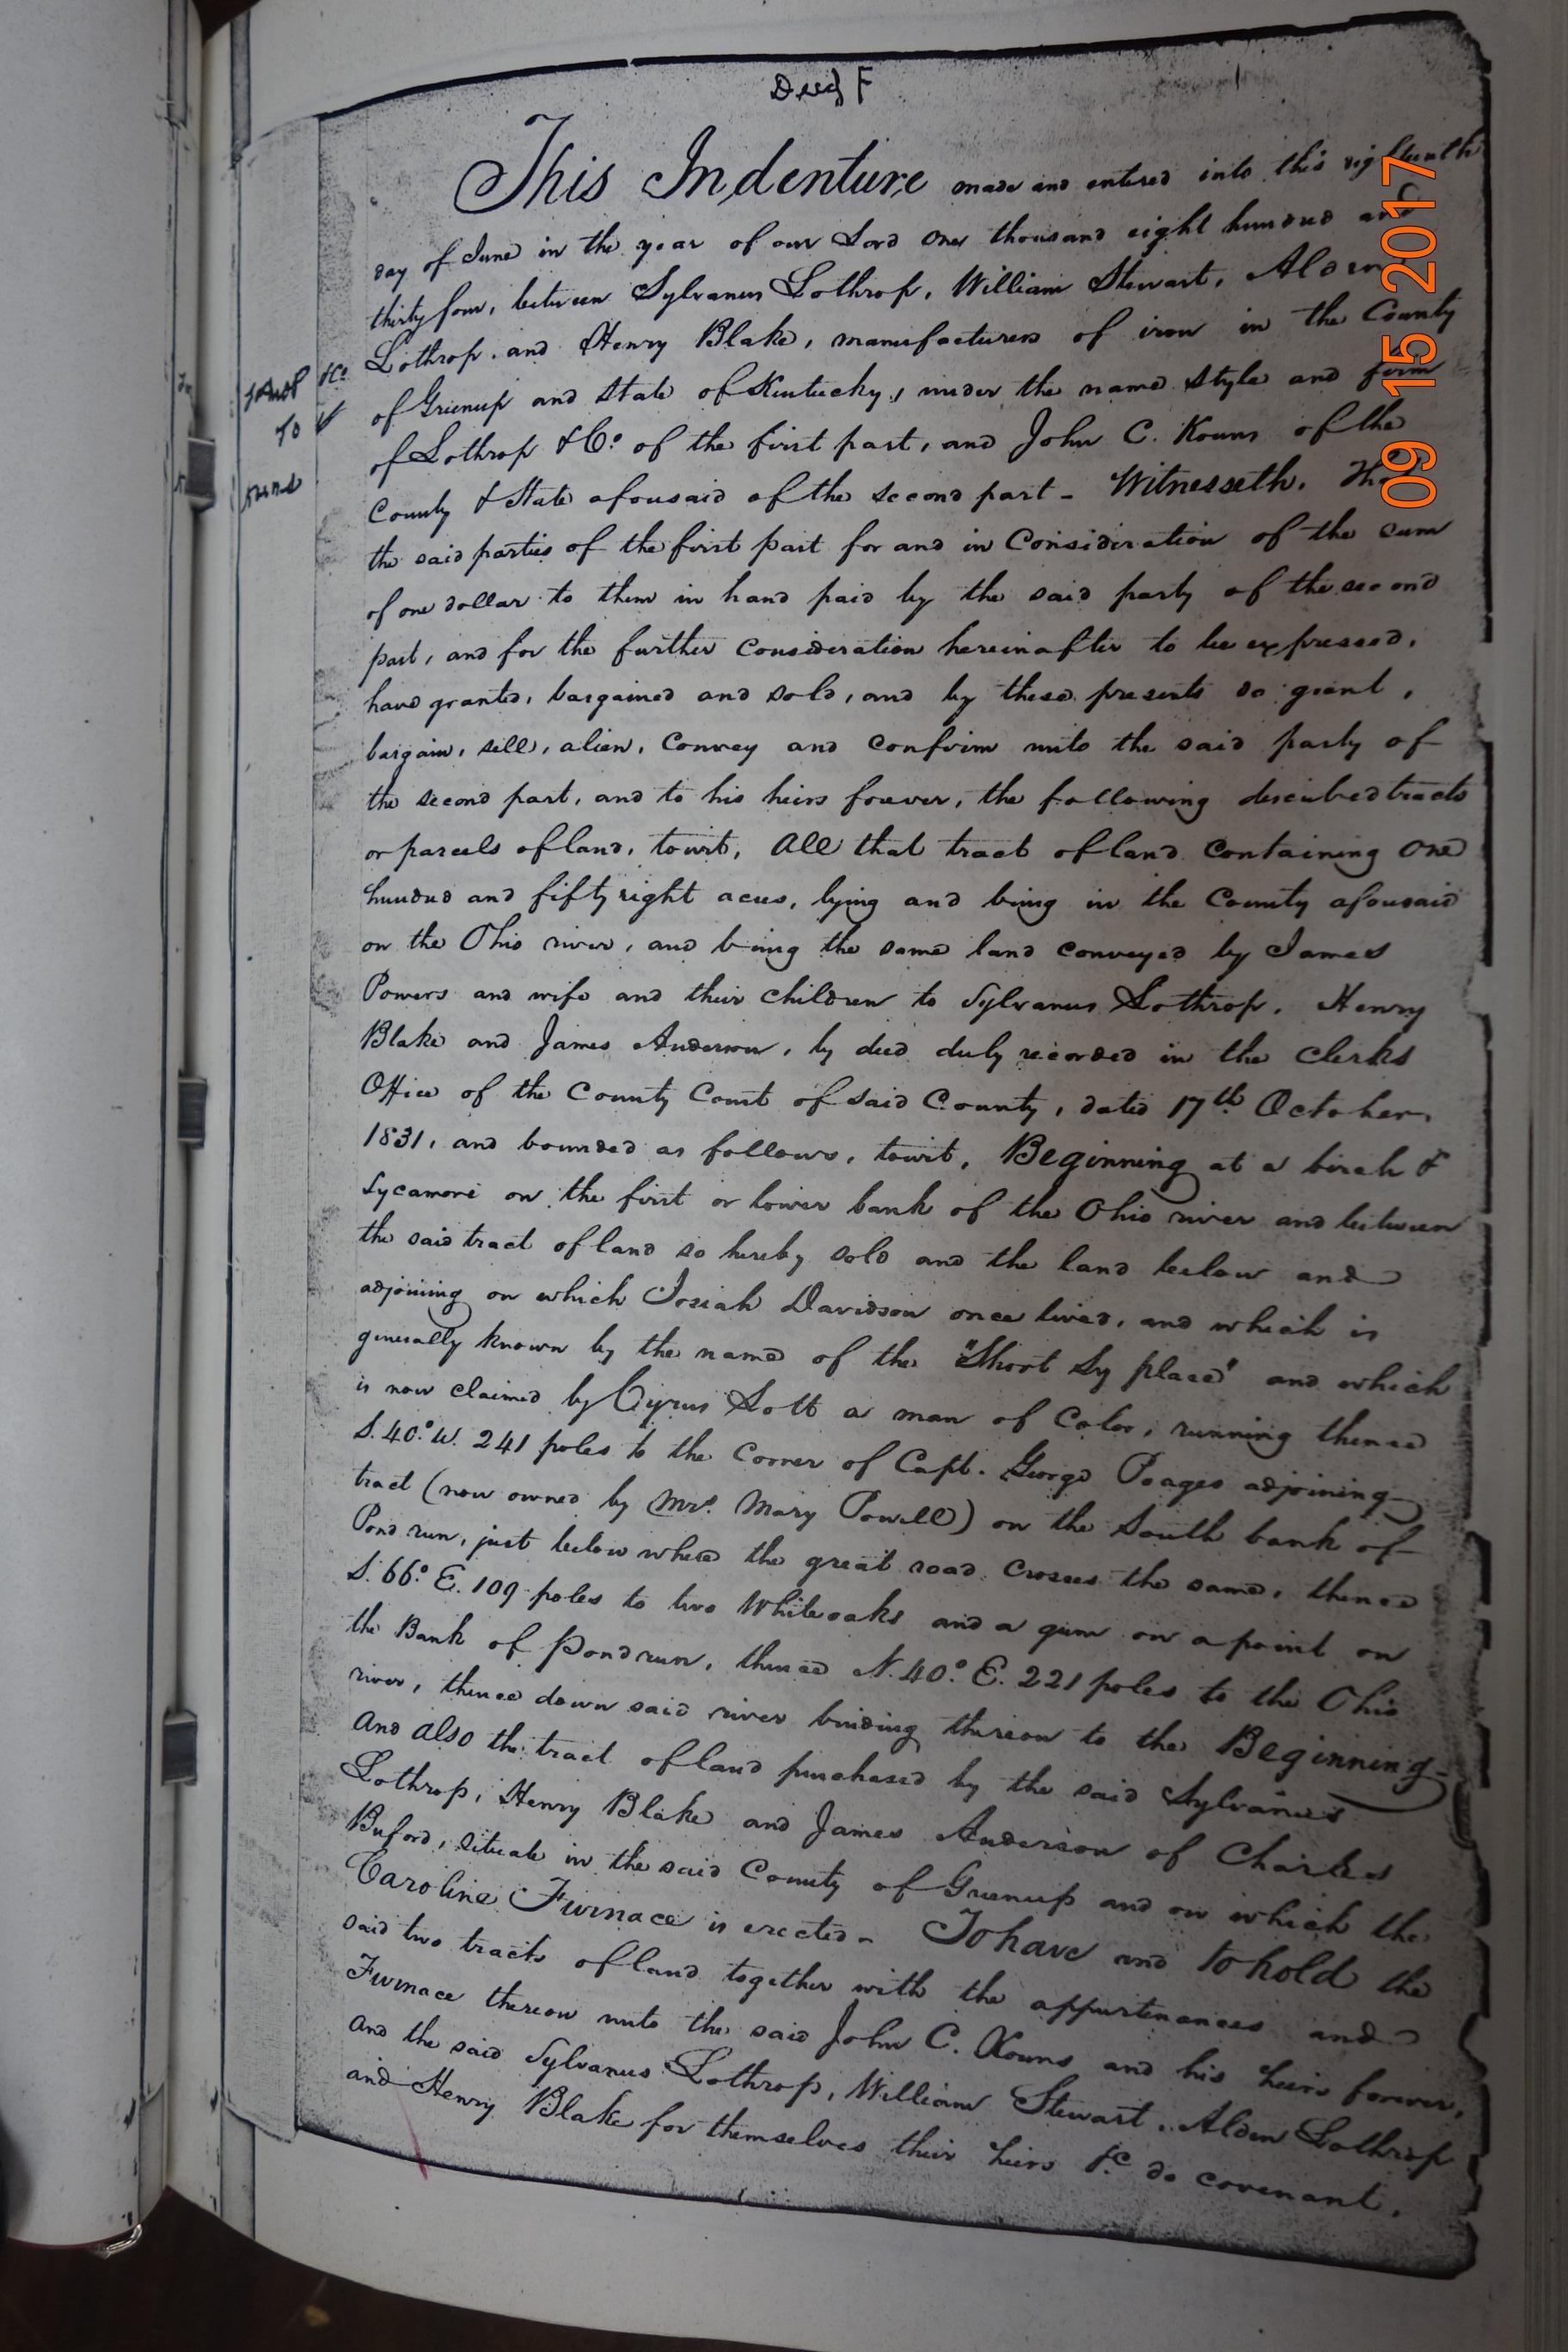 Deed F
This Indenture made and entered into this eighteenth
day of June in the year of our Lord One thousand eight hundred and
thirty four, between Sylvanus Lothrop, William Stewart, Alden
Lothrop, and Henry Blake, manufacturers of iron in the County
of Greenup and State of Kentucky, under the name style and firm
of Lothrop & Co. of the first part, and John C. Kouns of the
County & State aforesaid of the second part - Witnesseth. That
the said parties of the first part for and in Consideration of the sum
of one dollar to them in hand paid by the said party of the second
part, and for the further Consideration hereinafter to be expressed,
have granted, bargained and sold, and by these presents do grant,
bargain, sell, alien, Convey and Confirm unto the said party of
the second part, and to his heirs forever, the following described tracts
or parcels of land, towit, All that tract of land Containing One
hundred and fifty eight acres, lying and being in the County aforesaid
on the Ohio river, and being the same land conveyed by James
Powers and wife and their children to Sylvanus Lothrop, Henry
Blake and James Anderson, by deed duly recorded in the Clerks
Office of the County Court of said County, dated 17th October,
1831, and bounded as follows, towit, Beginning at a birch &
Sycamore on the first or lower bank of the Ohio river and between
the said tract of land so hereby sold and the land below and
adjoining on which Josiah Davidson once lived, and which is
generally known by the name of the "Short Sy place" and which
is now claimed by Cyrus Lott a man of Color, running thence
S. 40.° W. 241 poles to the Corner of Capt. George Poages adjoining
tract (now owned by Mrs. Mary Powell) on the South bank of
Pond run, just below where the great road Crosses the same, thence
S. 66.° E. 109 poles to two White oaks and a gum on a point on
the Bank of Pond run, thence N. 40.° E. 221 poles to the Ohio
river, thence down said river binding thereon to the Beginning -
And also the tract of land purchased by the said Sylvanus
Lothrop, Henry Blake and James Anderson of Charles
Buford, situate in the said County of Greenup and on which the
Caroline Furnace is erected - To have and to hold the
said two tracts of land together with the appurtenances and
Furnace thereon unto the said John C. Kouns and his heirs forever,
And the said Sylvanus Lothrop, William Stewart, Alden Lothrop
and Henry Blake for themselves their heirs &c do covenant,
&Co
To
09 15 2017